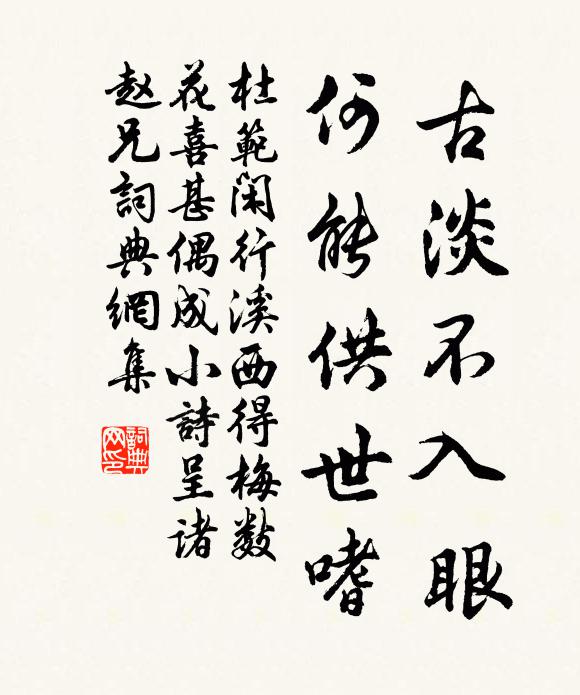 古淡不入眼
何能供世嗜
杜範閑行溪西得梅数
花喜甚偶成小詩呈诸
赵兄詞典網集
詞典网印